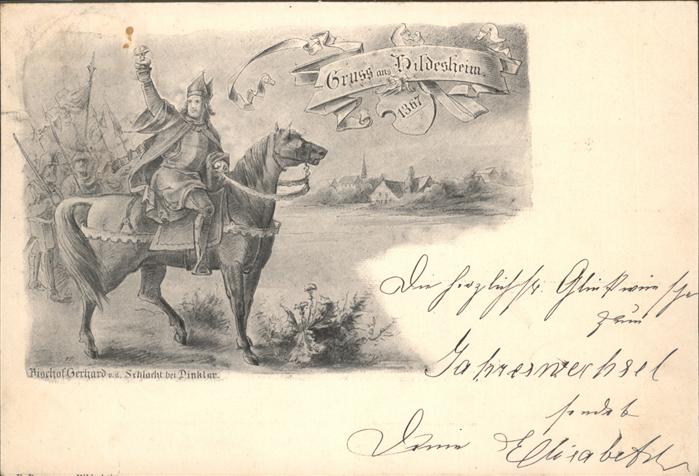 Gruss aus Hildesheim.
1367
Die herzlichst. Glückwünsche
zum
Jahreswechsel
sendet
Deine Elisabeth
Bischof Gerhard v.d. Schlacht bei Dinklar.